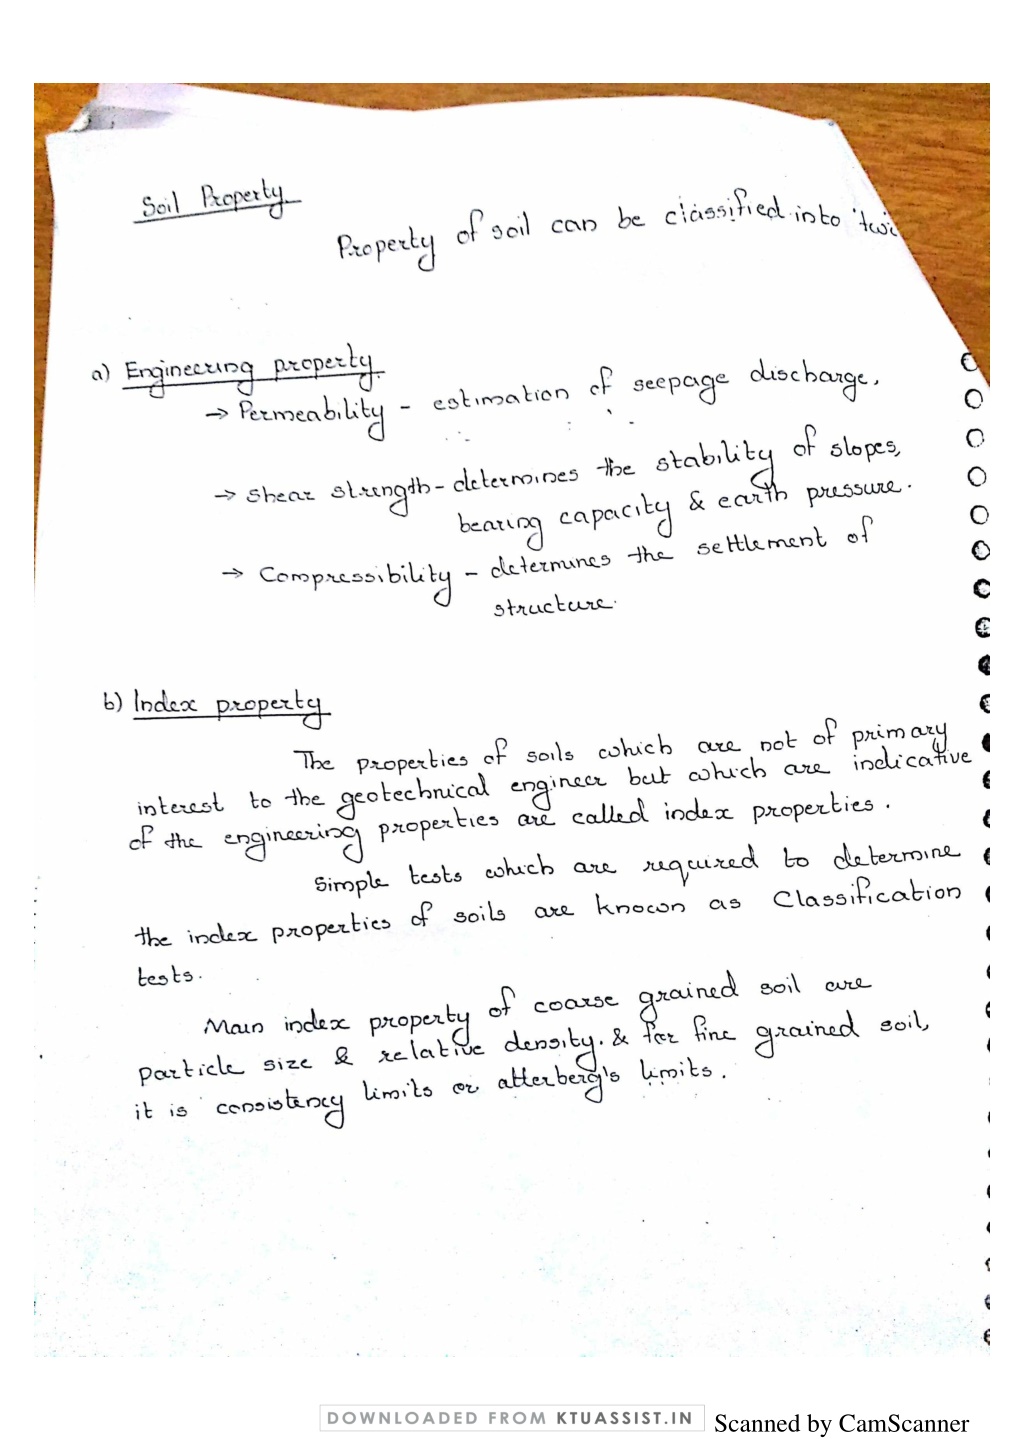 Soil Property
Property of soil can be classified into
a) Engineering property.
→ Permeability - estimation of seepage discharge.
→ Shear strength - determines the stability of slopes,
bearing capacity & earth pressure.
→ Compressibility - determines the settlement of
structure.
b) Index property
The properties of soils which are not of primary
interest to the geotechnical engineer but which are indicative
of the engineering properties are called index properties.
Simple tests which are required to determine
the index properties of soils are known as Classification
tests.
Main index property of coarse grained soil are
particle size & relative density. & for fine grained soil,
it is consistency limits or atterberg's limits.
DOWNLOADED FROM KTUASSIST.IN
Scanned by CamScanner